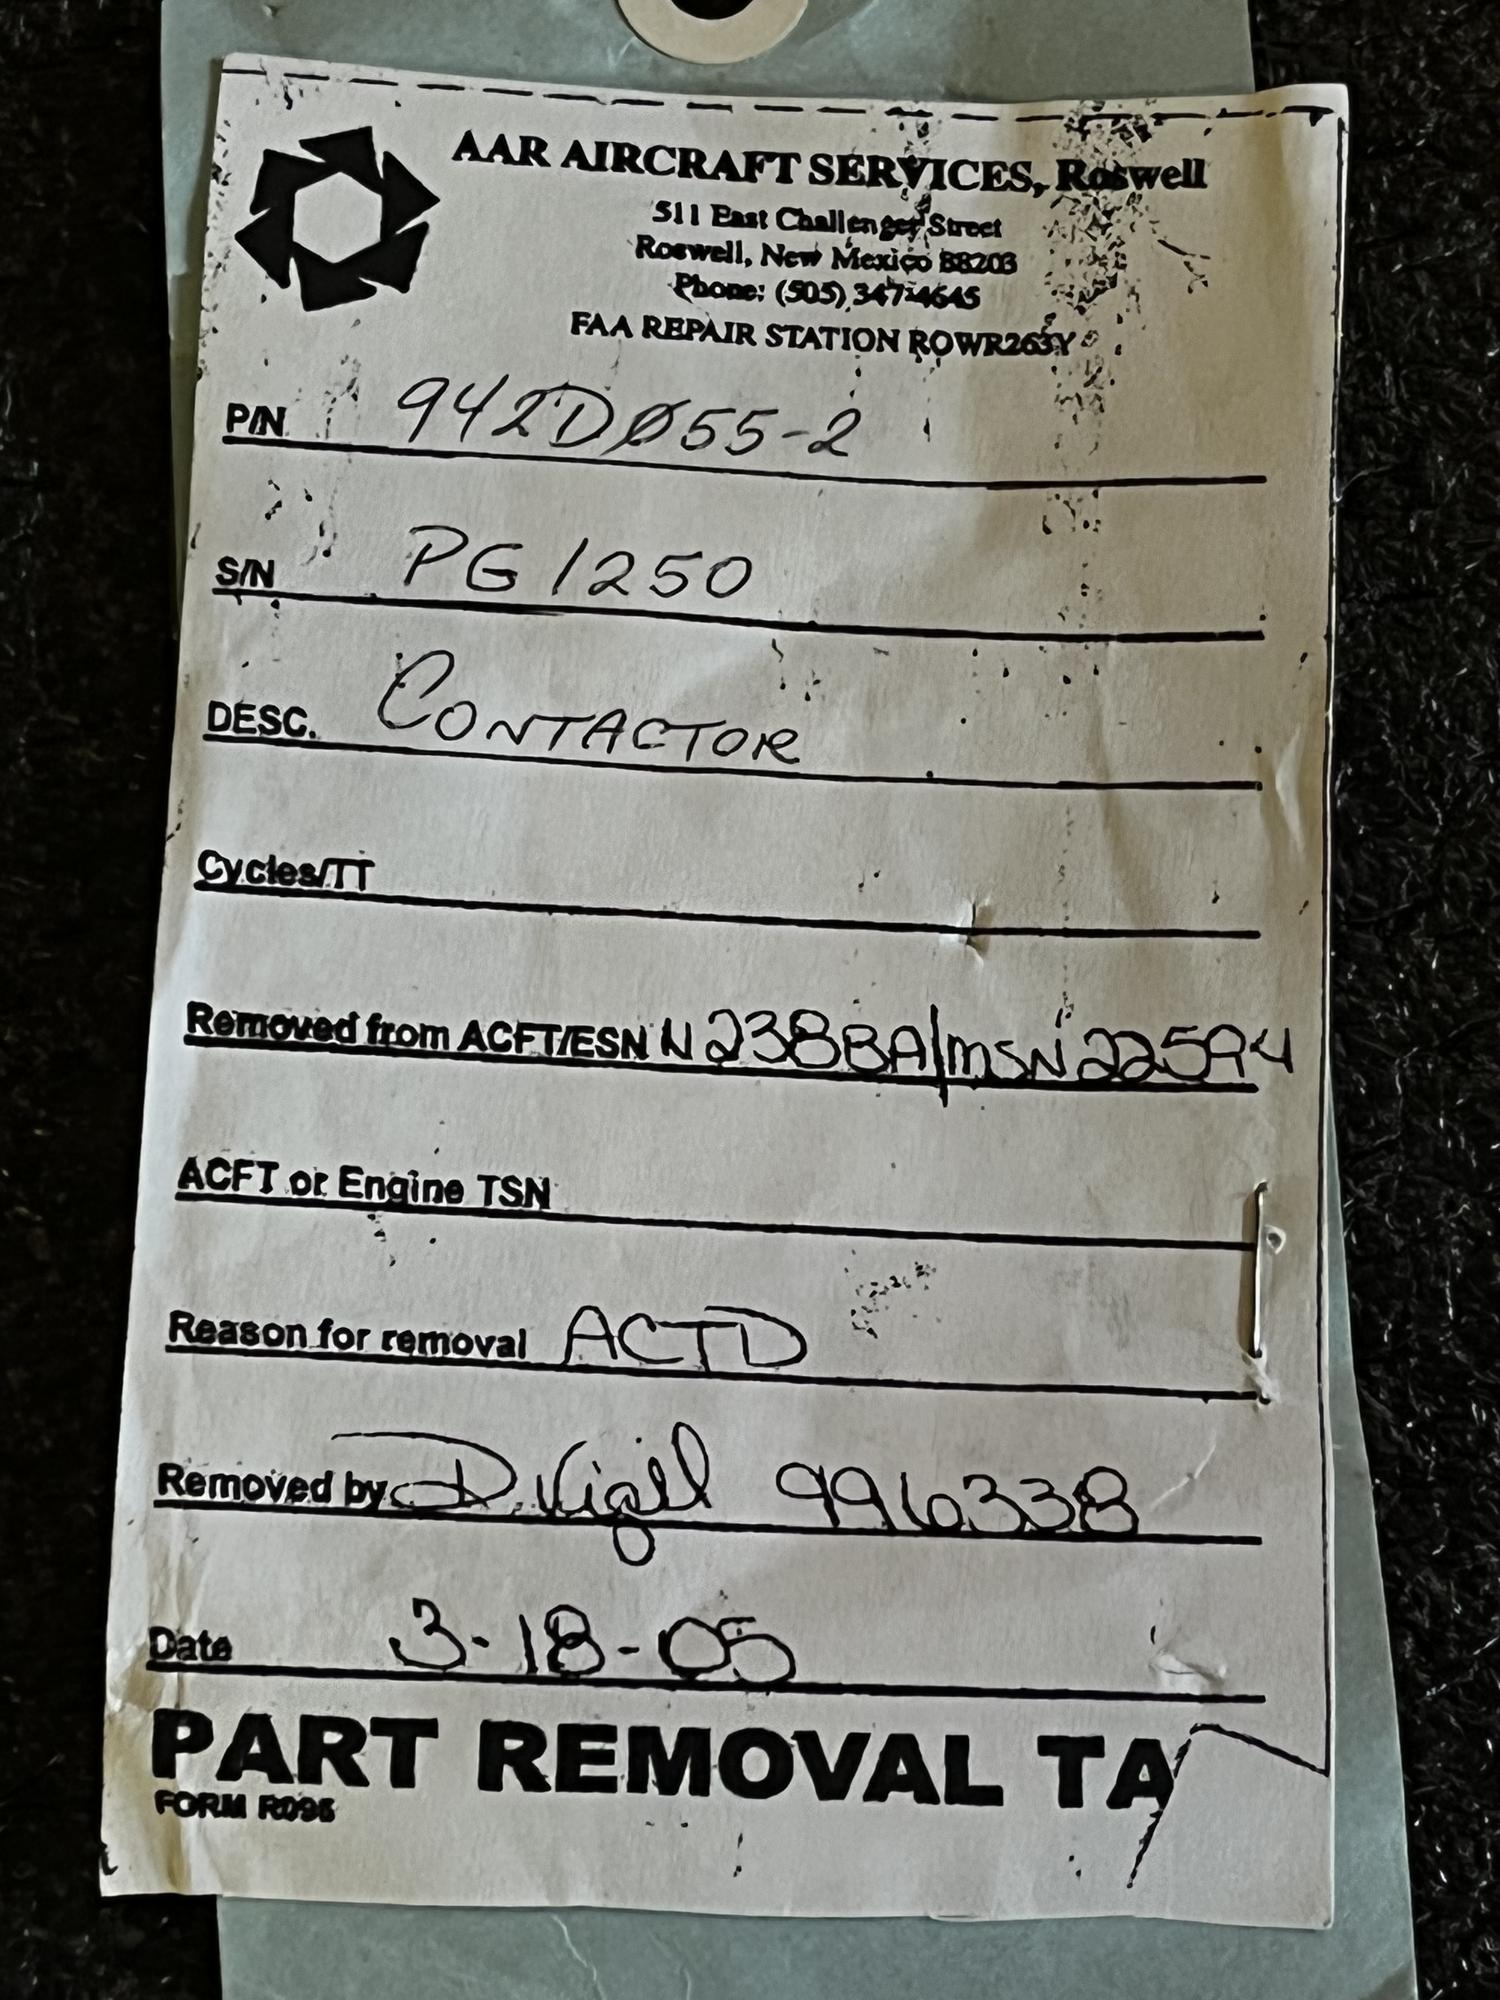 AAR AIRCRAFT SERVICES, Roswell
511 East Challenger Street
Roswell, New Mexico 88203
Phone: (505) 347-4645
FAA REPAIR STATION ROWR263Y
P/N 942DØ55-2
S/N PG1250
DESC. CONTACTOR
Cycles/TT
Removed from ACFT/ESN N238BA/MSN 22594
ACFT or Engine TSN
Reason for removal ACTD
Removed by D. Vigil 996338
Date 3-18-05
PART REMOVAL TA
FORM R096